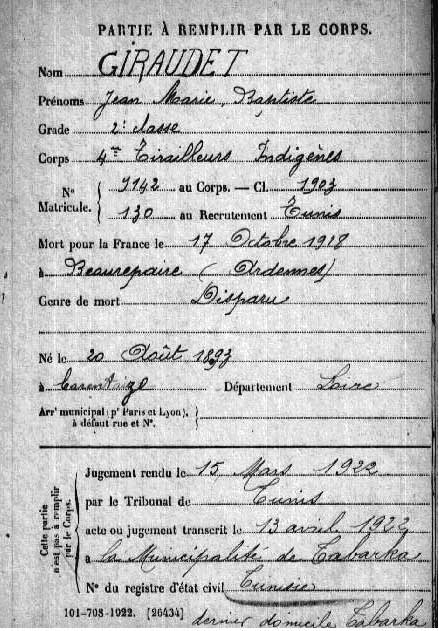 PARTIE À REMPLIR PAR LE CORPS.
Nom GIRAUDET
Prénoms Jean Marie, Baptiste
Grade 2e classe
Corps 4me Tirailleurs Indigènes
N° Matricule. 9142 au Corps. — Cl. 1903
130 au Recrutement Tunis
Mort pour la France le 17 Octobre 1918
à Beaurepaire (Ardennes)
Genre de mort Disparu
Né le 20 Août 1893
à Département Loire
Arrt municipal (pr Paris et Lyon),
à défaut rue et N°.
Cette partie
n'est pas à remplir
par le Corps.
Jugement rendu le 15 Mars 1922
par le Tribunal de Tunis
acte ou jugement transcrit le 13 avril 1922
à la Municipalité de Tabarka
N° du registre d'état civil Tunisie
101-708-1922. [26434] dernier domicile Tabarka